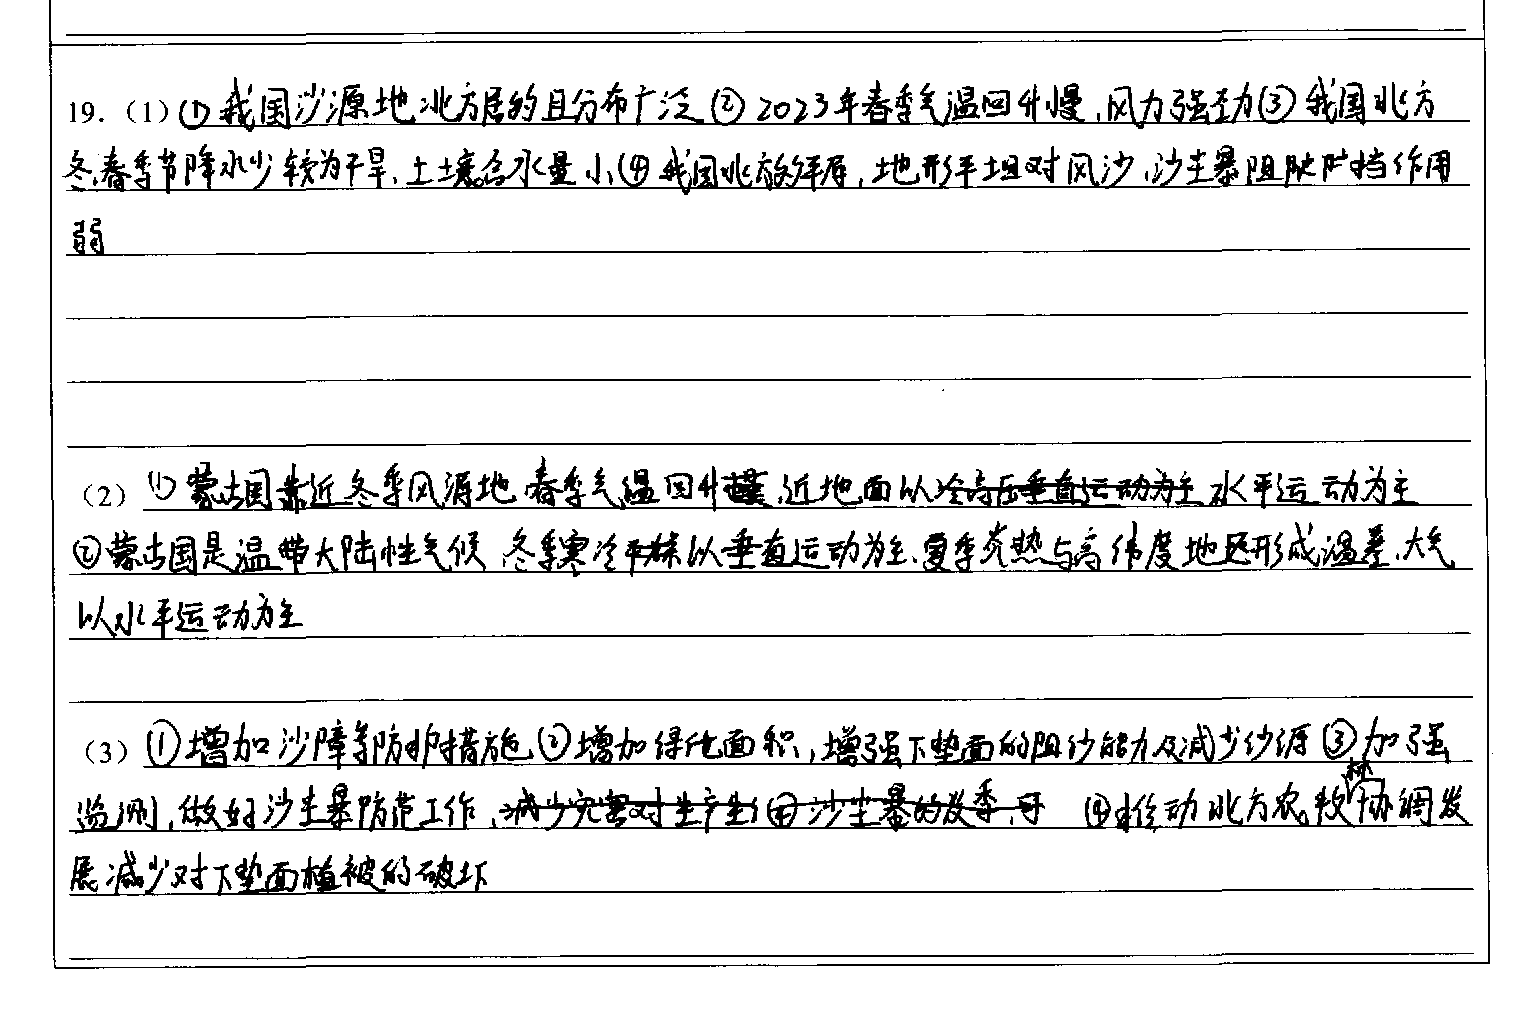 19.（1）①我国沙源地北方居的且分布广泛②2023年春季气温回升慢,风力强劲③我国北方
冬.春季节降水少较为干旱,土壤含水量小④我国北方,地形平坦对风沙,沙尘暴阻挡作用
弱
（2）①蒙古国靠近冬季风源地 春季气温回升 近地面以冷高压垂直运动为主水平运动为主
②蒙古国是温带大陆性气候 冬季寒冷以垂直运动为主.夏季炎热与高纬度地区形成温差.大气
以水平运动为主
（3）①增加沙障等防护措施②增加绿化面积,增强下垫面的阻沙能力及减少沙源③加强
监测,做好沙尘暴防范工作,减少灾害对生产生④沙尘暴的发 ④推动北方农牧林协调发
展减少对下垫面植被的破坏